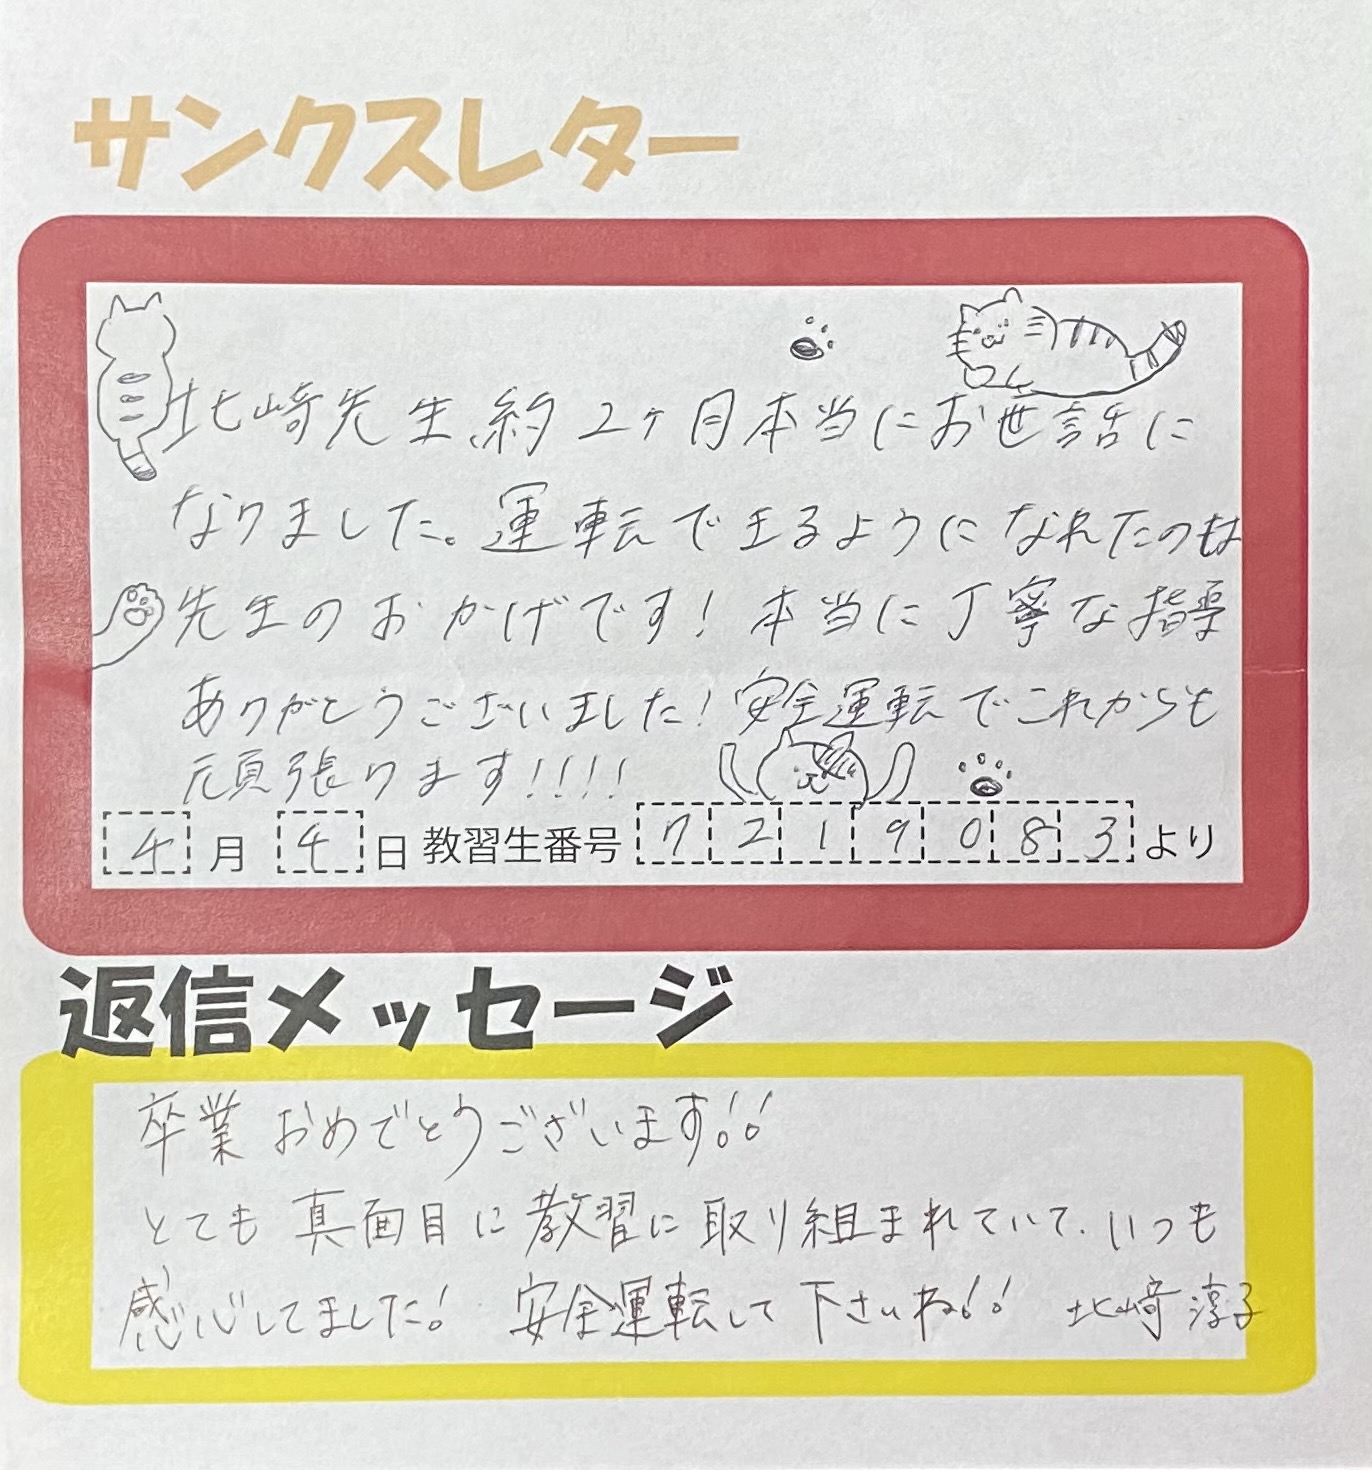 サンクスレター
北崎先生、約2ヶ月本当にお世話に
なりました。運転できるようになれたのは
先生のおかげです！本当に丁寧な指導
ありがとうございました！安全運転でこれからも
頑張ります！！！！
4月4日教習生番号7219083より
返信メッセージ
卒業おめでとうございます！！
とても真面目に教習に取り組まれていて、いつも
感心してました！安全運転して下さいね！！北崎淳子